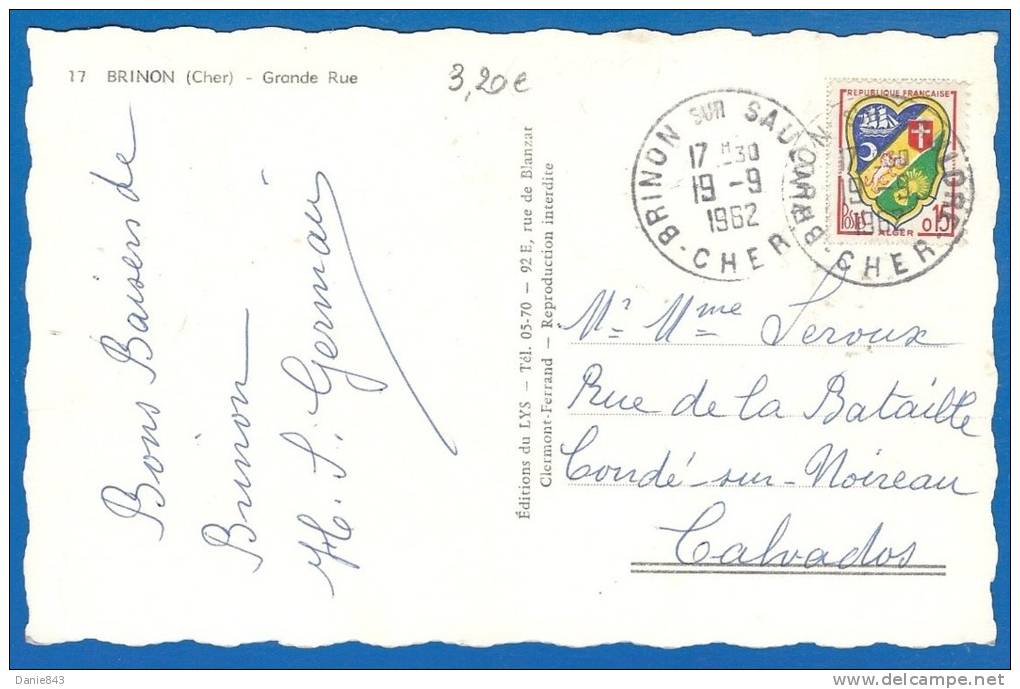 17 BRINON (Cher) - Grande Rue
3,20€
Bons Baisers de
Brinon
H. S. Germain
Éditions du LYS — Tél. 05-70 — 92 E, rue de Blanzat
Clermont-Ferrand — Reproduction interdite
BRINON SUR SAULDRE
17 H30
19 -9
1962
- CHER
RÉPUBLIQUE FRANÇAISE
POSTES
0,15
ALGER
- CHER
Mr Mme Leroux
Rue de la Bataille
Condé-sur-Noireau
Calvados
Danie843
www.delcampe.net